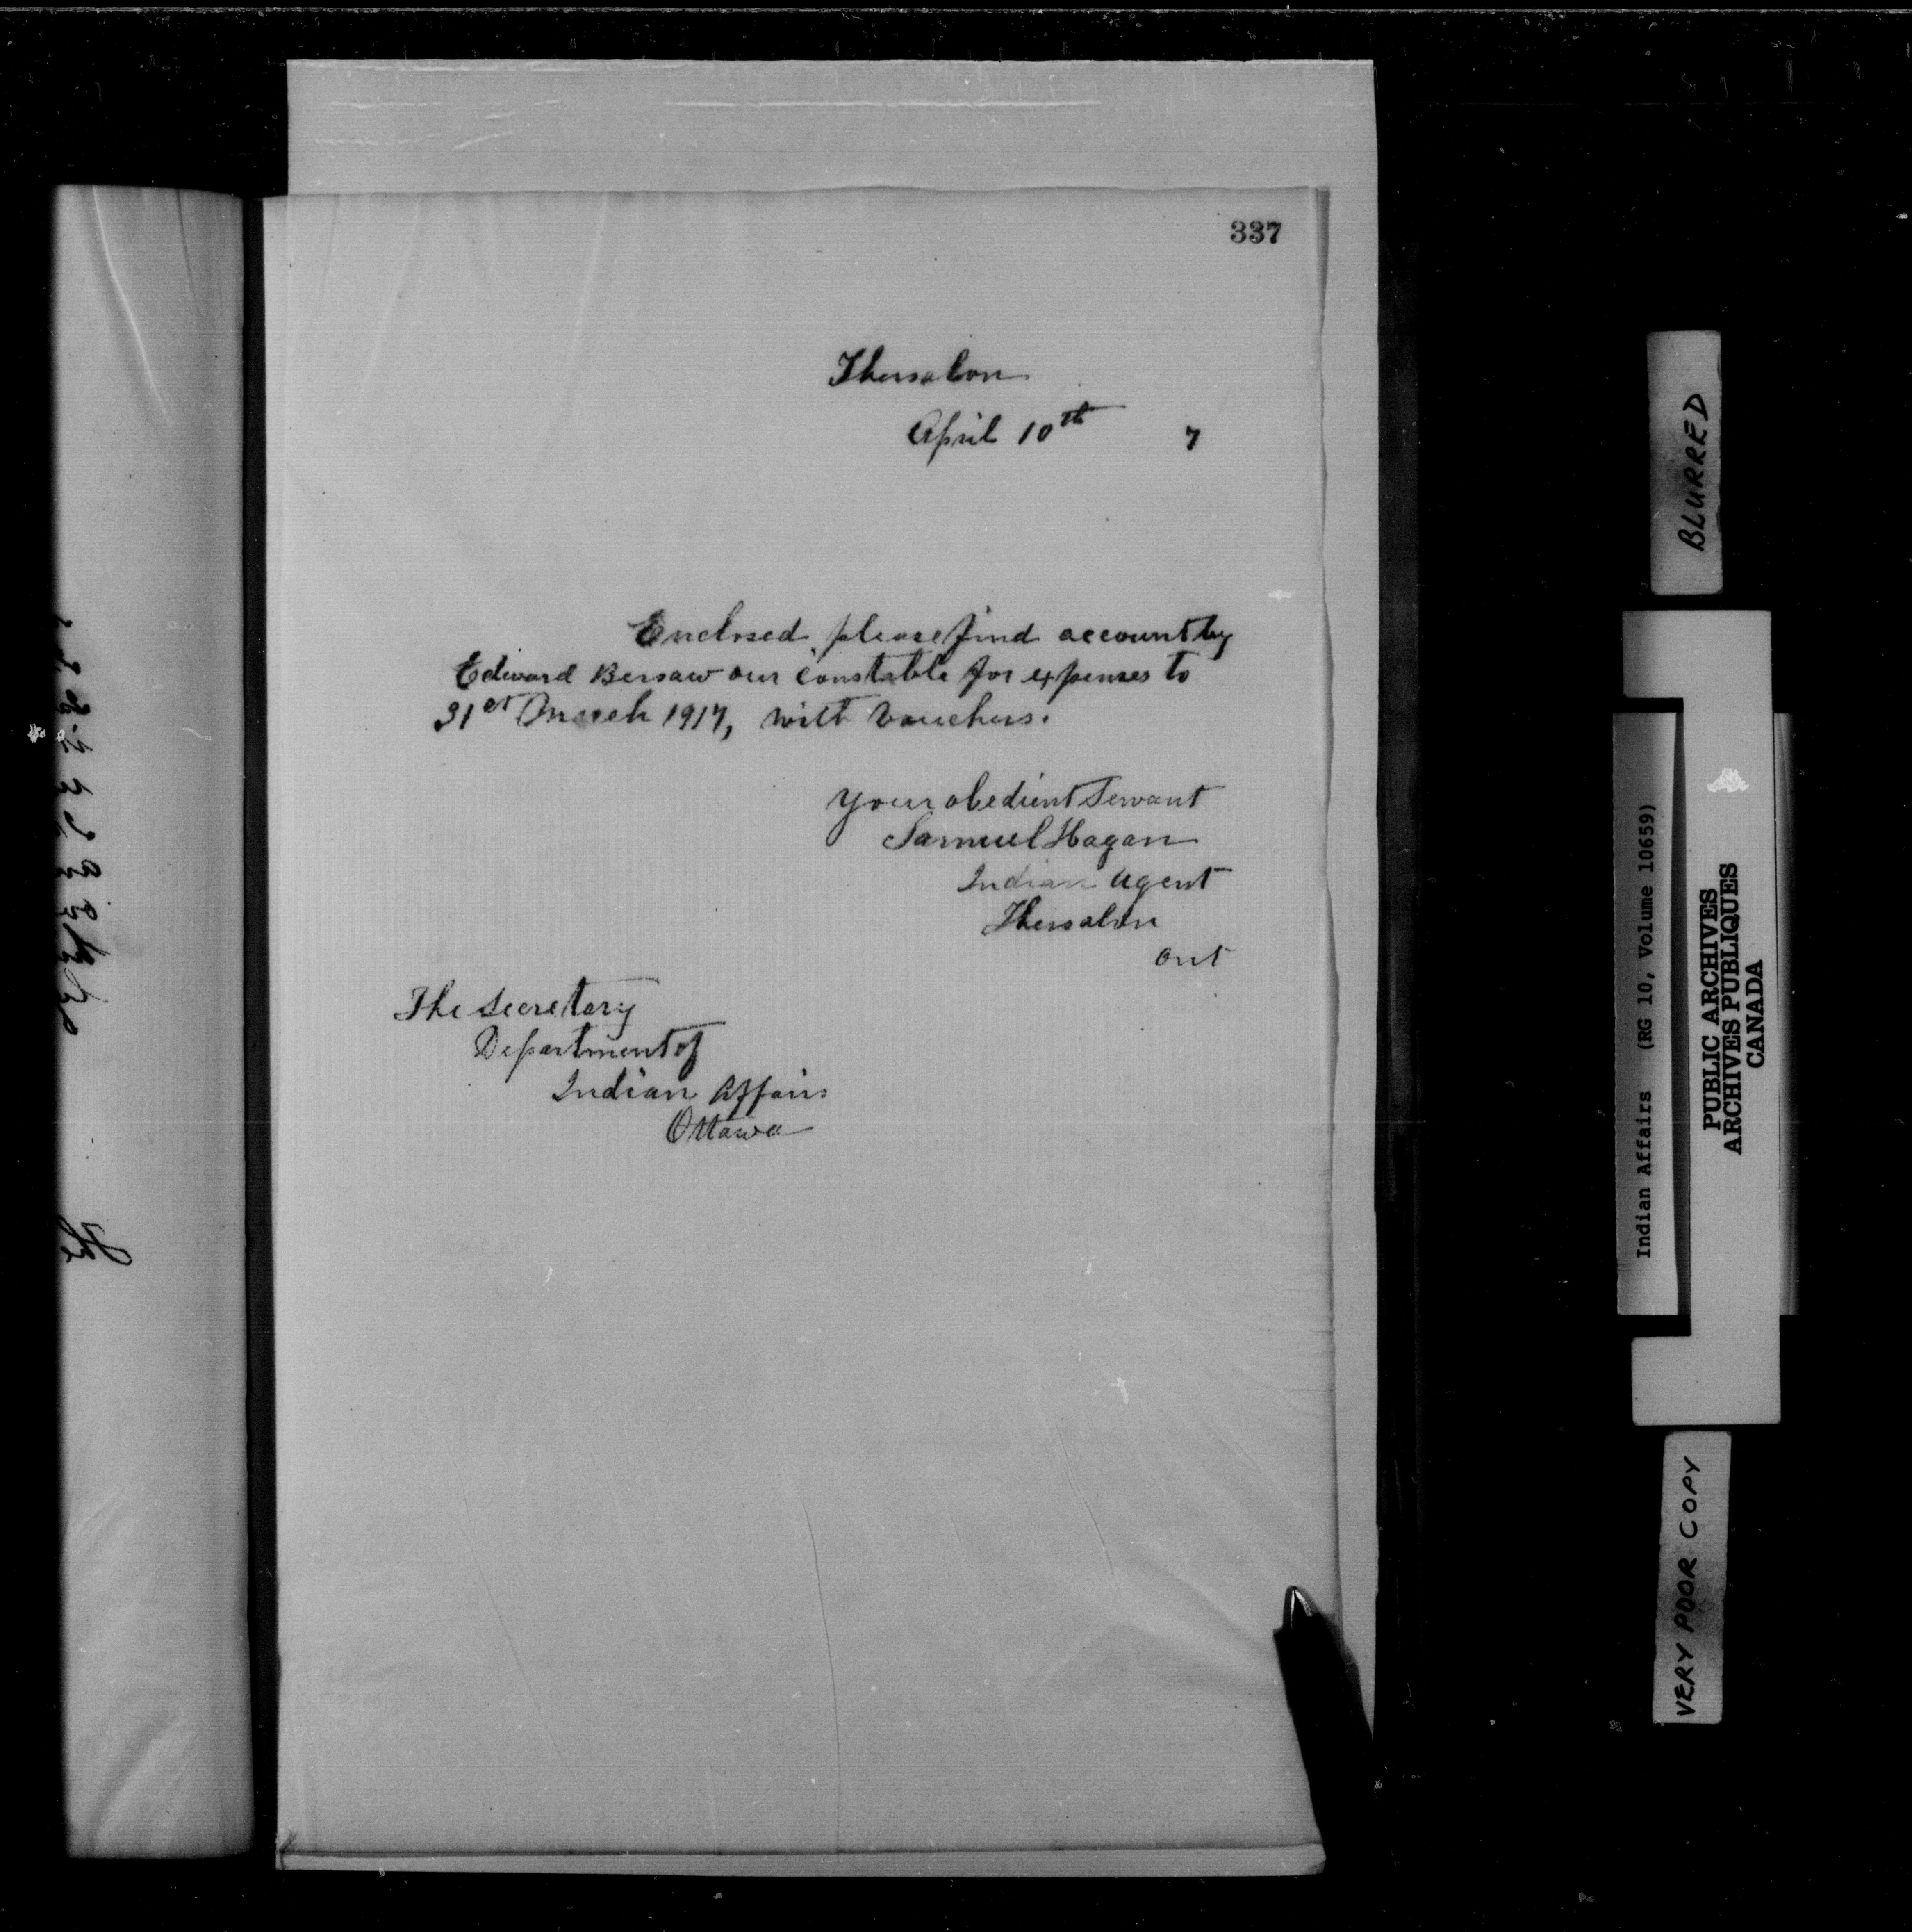 337
Thessalon
April 10th 7
Enclosed please find account by
Edward Bersaw our constable for expenses to
31st March 1917, with Vouchers.
Your obedient Servant
Samuel Hagan
Indian Agent
Thessalon
Ont
The Secretary
Department of
Indian Affairs
Ottawa
BLURRED
Indian Affairs (RG 10, Volume 10659)
PUBLIC ARCHIVES
ARCHIVES PUBLIQUES
CANADA
VERY POOR COPY